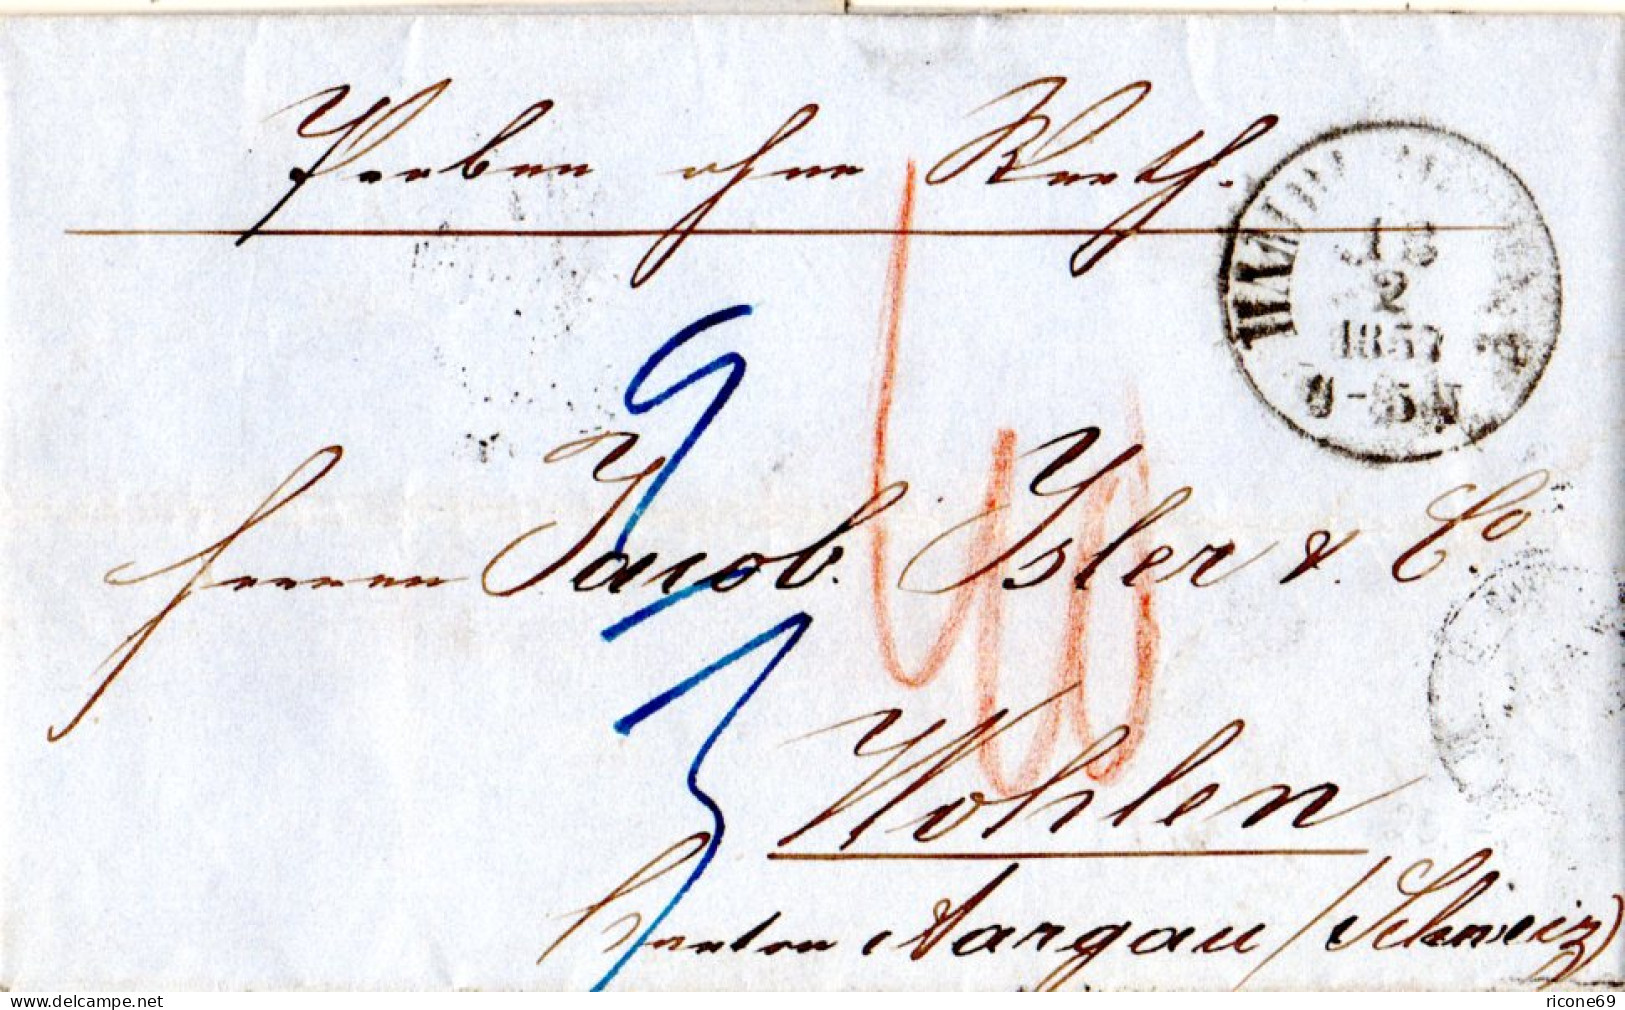 Proben ohne Werth.
2
1857
Herren Jacob Isler & Co.
Wohlen
Canton Aargau (Schweiz)
www.delcampe.net
ricone69